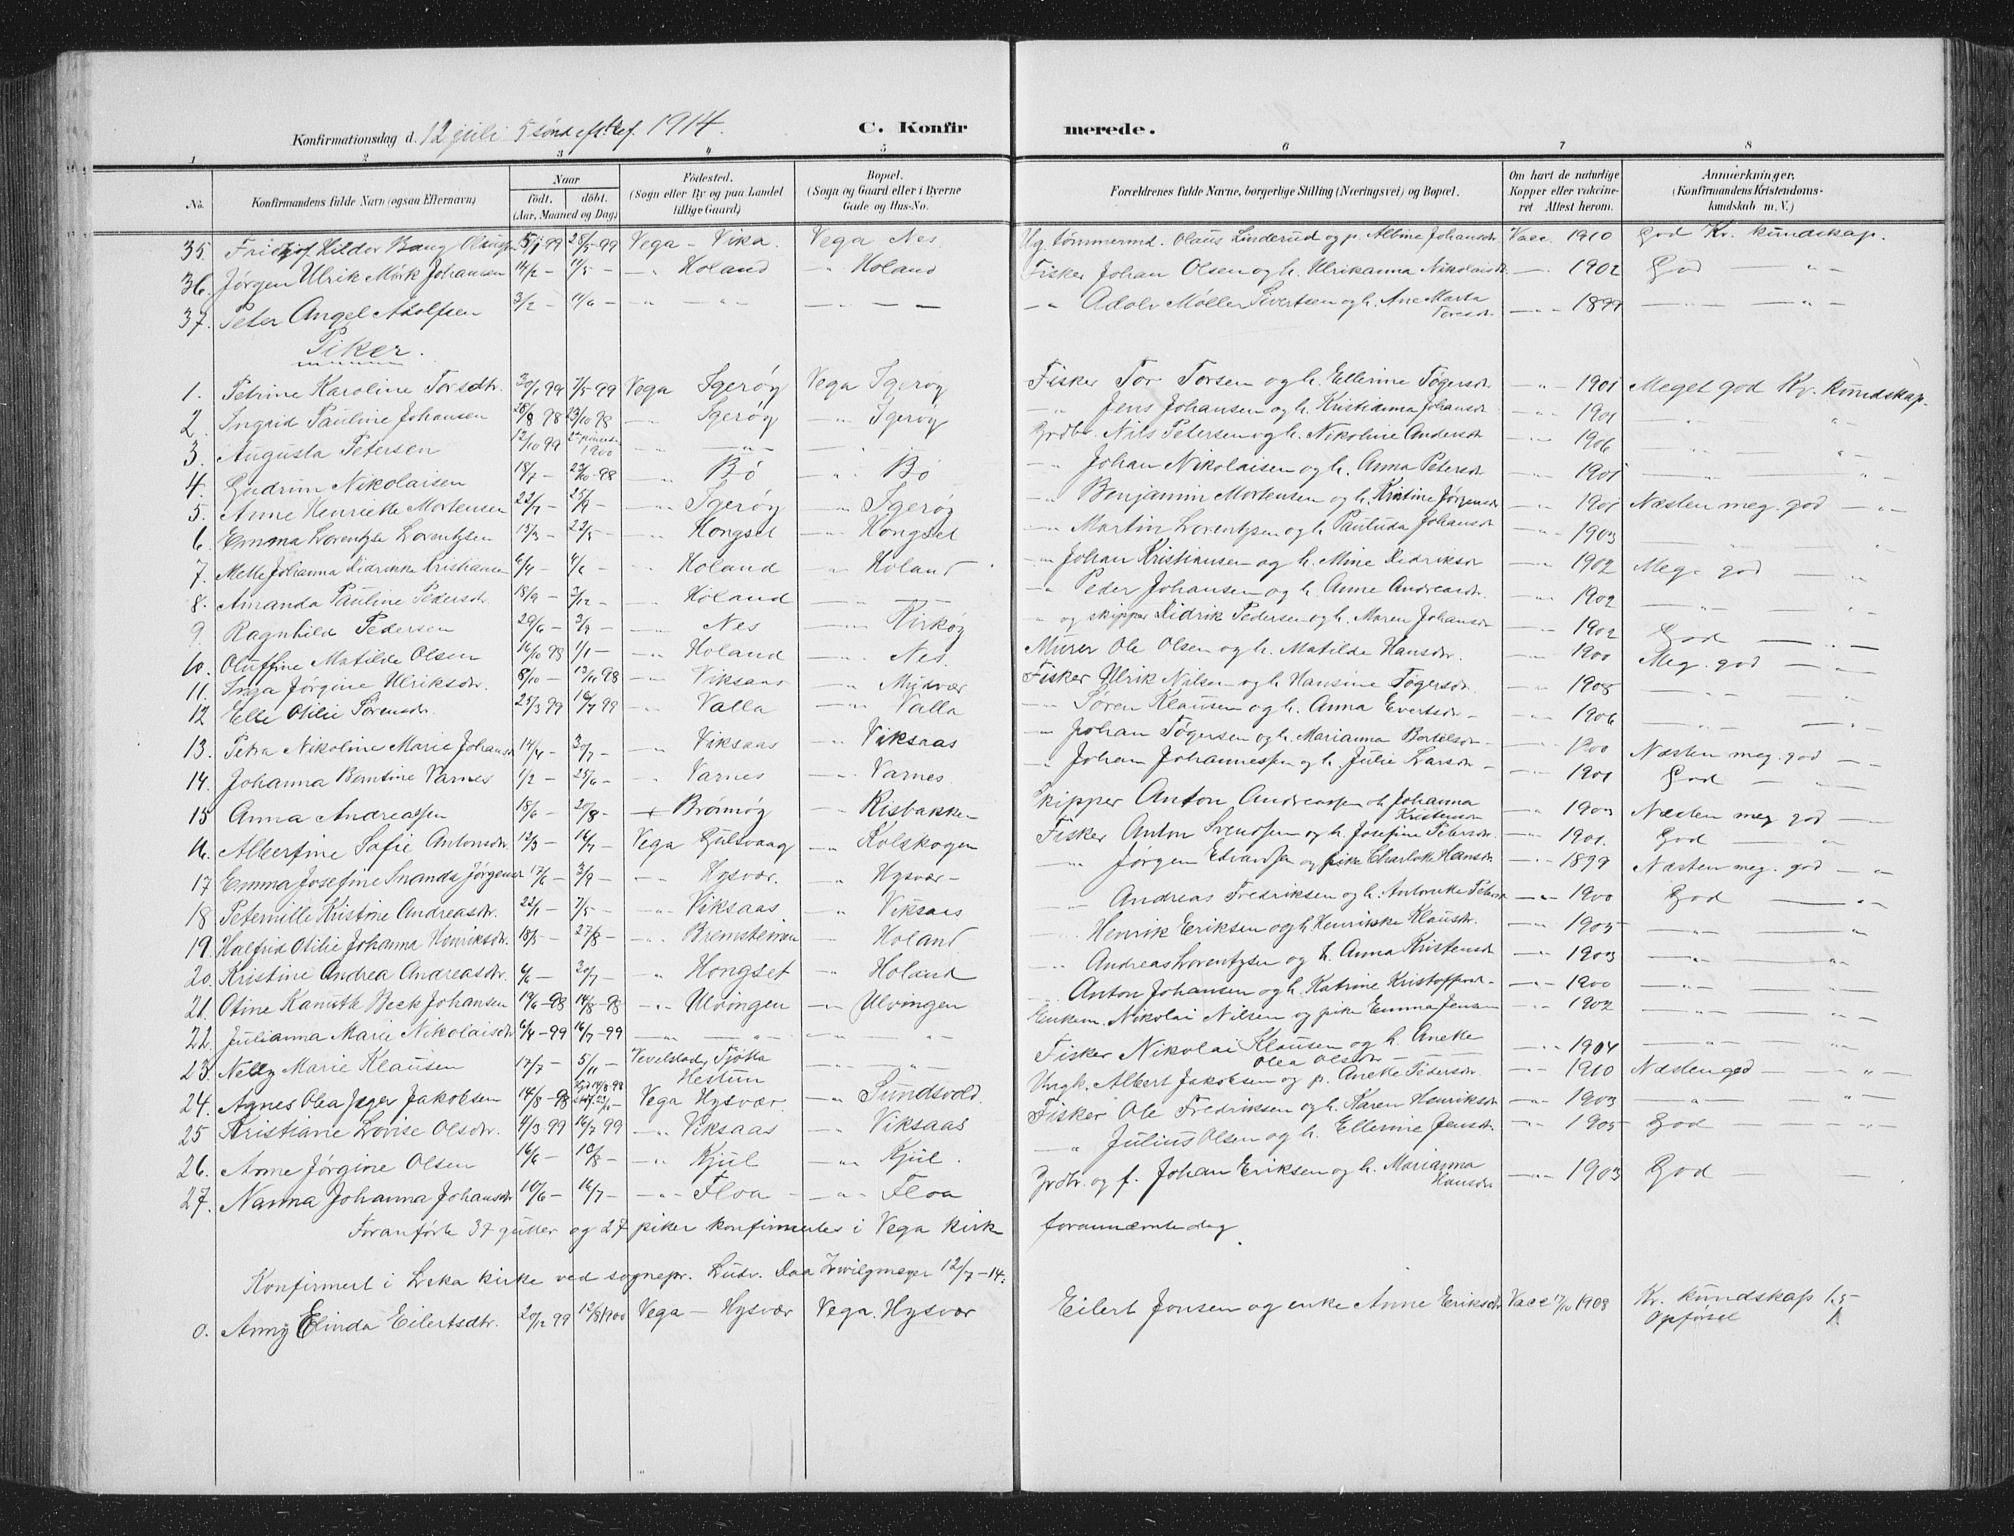 Konfirmationsdag d. 12 juli 5 sønd eft tref. 1914. C. Konfirmerede.
1 2 3 4 5 6 7 8
No. Konfirmandens fulde Navn (ogsaa Efternavn) Naar født. døbt. (Aar, Maaned og Dag) Fødested. (Sogn eller By og paa Landet tillige Gaard) Bopæl. (Sogn og Gaard eller i Byerne Gade og Hus-No. Forældrenes fulde Navne, borgerlige Stilling (Næringsvei) og Bopæl. Om havt de naturlige Kopper eller vakcineret Attest herom. Anmærkninger. (Konfirmandens Kristendomskundskab m. V.)
35. Fritjof Hildor Bang Olausen 5/1 99 28/5-99 Vega - Vika. Vega Nes. Ug. tømmermd. Olaus Linderud og p. Albine Johansdr Vacc. 1910 God Kr. kundskap.
36. Jørgen Ulrik Mørk Johansen 14/2 - 11/5 - -"- Holand " Holand Fisker Johan Olsen og h. Ulrikanna Nikolaisdr -"- 1902 God -"-
37. Peter Angel Adolfsen 3/2 - 11/6 - -"- -"- -"- - -"- Adolv Møller Sivertsen og h. Ane Marta Toresdr. -"- 1899 -"- -"-
Piker.
1. Petrine Karoline Torsdtr. 30/1 99 7/5-99 Vega Igerøy Vega Igerøy Fisker Tor Torsen og h. Ellerine Tøgersdr -"- 1901 Meget god Kr. kundskap.
2. Ingrid Pauline Johansen 28/8 98 23/10 98 -"- Igerøy -"- Igerøy -"- Jens Johansen og h. Kristianna Johansdr -"- 1901 -"- -"-
3. Augusta Petersen 12/10 99 2den pinsed. 1900 -"- -"- -"- Grdbr. Nils Petersen og h. Nikoline Andersdr -"- 1906 -"- -"-
4. Gudrun Nikolaisen 18/7 - 23/10-98 -"- Bø -"- Bø -"- Johan Nikolaisen og h. Anna Petersdr -"- 1901 -"- -"-
5. Anne Henriette Mortensen 22/7 - 25/9 - -"- Igerøy -"- Igerøy -"- Benjamin Mortensen og h. Kristine Jørgensdr -"- 1901 Næsten meg. god -"-
6. Emma Lorentse Lorentsen 15/3 - 22/5 - -"- Hongset -"- Hongset -"- Martin Lorentsen og h. Pauluda Johansdr -"- 1903 -"- -"-
7. Mette Johanna Didrikke Kristiansen 6/4 - 4/6 - -"- Holand " Holand -"- Johan Kristiansen og h. Mine Didriksdr -"- 1902 Meg. god -"-
8. Amanda Pauline Pedersdr. 18/9 - 3/12 - -"- Holand -"- -"- Peder Johansen og h. Anne Andreasdr. -"- 1902 -"- -"-
9. Ragnhild Pedersen 29/6 - 3/9 - -"- Nes -"- Kirkøy " og skipper Didrik Pedersen og h. Maren Johansdr -"- 1902 God -"-
10. Oluffine Matilde Olsen 16/10 98 1/1 - -"- Holand -"- Nes. Murer Ole Olsen og h. Matilde Hansdr. -"- 1900 Meg. god -"-
11. Inga Jørgine Ulriksdr. 8/10 - 13/11 98 -"- Viksaas -"- Muddvær Fisker Ulrik Nilsen og h Hansine Tøgersdr. -"- 1908 -"- -"-
12 Elle Otilie Sørensdr. 25/3 99 16/7 99 -"- Valla -"- Valla -"- Søren Klausen og h. Anna Evertsdr - -"- 1906 -"- -"-
13. Petra Nikoline Marie Johansdr 14/4 - 30/7 - -"- Viksaas -"- Viksaas -"- Johan Tøgersen og h. Marianna Bertelsdr - -"- 1900 Næsten meg. god -"-
14. Johanna Berntine Varnes 1/2 - 25/6 - -"- Varnes -"- Varnes. -"- Johan Johannessen og h. Julie Larsdr - -"- 1901 God -"-
15 Anna Andreassen 18/6 - 20/8 - + Brönnöy -"- Risbakken Skipper Anton Andreassen og h. Johanna Kristensdr -"- 1903 Næsten meg god -"-
16. Albertine Sofie Antonsdr. 12/3 - 16/7 - Vega Gulsvaag -"- Kolskogen Fisker Anton Svendsen og h. Josefine Petersdr -"- 1901. God -"-
17 Emma Josefine Snanda Jørgensdr 17/6 - 3/9 - -"- Hysvær. -"- Hysvær - -"- Jørgen Edvardsen og pike Charlotte Hansdr -"- 1899 Næsten meg. god -"-
18 Peternille Kristine Andreasdr. 22/1 - 7/5 - -"- Viksaas. " Viksaas -"- Andreas Fredriksen og h. Antonette Petersdr -"- 1900 God -"-
19. Halfrid Otilie Johanna Henriksdr. 18/5 - 27/8 - -"- Bremstemen -"- Holand -"- Henrik Eriksen og h Henrikke Klausdr. -"- 1905 -"- -"-
20. Kristine Andrea Andreasdr. 6/6 - 30/7 - " Hongset -"- Holand -"- Andreas Lorentsen og h. Anna Kristensdr -"- 1903 -"- -"-
21. Otine Kanuth Beck Johansen 19/6-98 14/8-98 -"- Ulvingen -"- Ulvingen -"- Anton Johansen og h. Katrine Kristoffersdr. -"- 1900 -"- -"-
22. Julianna Marie Nikolaisdr 6/4-99 16/7-99 -"- -"- -"- -"- Enkem. Nikolai Nilsen og pike Emma Jensen -"- 1902 -"- -"-
23. Nelly Marie Klausen 17/7 - 5/11 - Vevelstad, Tjøtta -"- -"- Fisker Nikolai Klausen og h. Anette Olea Olsdr - -"- 1904 -"- -"-
24. Agnes Olea Jæger Jakobsen 14/8-98 Hestun Vega Hysvær. -"- Sundsvold. Ungk. Albert Jakobsen og p. Anette Pedersdr. -"- 1910 Næsten god -"-
25 Kristiane Lovise Olsdtr. 4/3 99 16/7 99 -"- Viksaas -"- Viksaas Fisker Ole Fredriksen og h. Karen Henriksdr -"- 1903 -"- -"-
26. Anne Jørgine Olsen 16/6 - 13/8 - -"- Kjul -"- Kjul. -"- Julius Olsen og h. Ellerine Jensdr. -"- 1905 God -
27. Nanna Johanna Johansdr 10/6 - 16/7 - -"- Floa - -"- Floa Grdbr. og f. Johan Eriksen og h. Marianna Hansdr -"- 1903 God -
Foranførte 37 gutter og 27 piker konfirmertes i Vega kirke forannævnte dag.
Konfirmert i Leka kirke ved sognepr. Ludv. Daa Zwilgmeyer 12/7-14:
0. Anny Elinda Eilertsdtr. 20/12 99 12/8 1900 Vega - Hysvær Vega. Hysvær Eilert Jensen og enke Anne Eriksdr Vacc 17/10 1908 Kr. kundskap 1.5
Opførsel 1